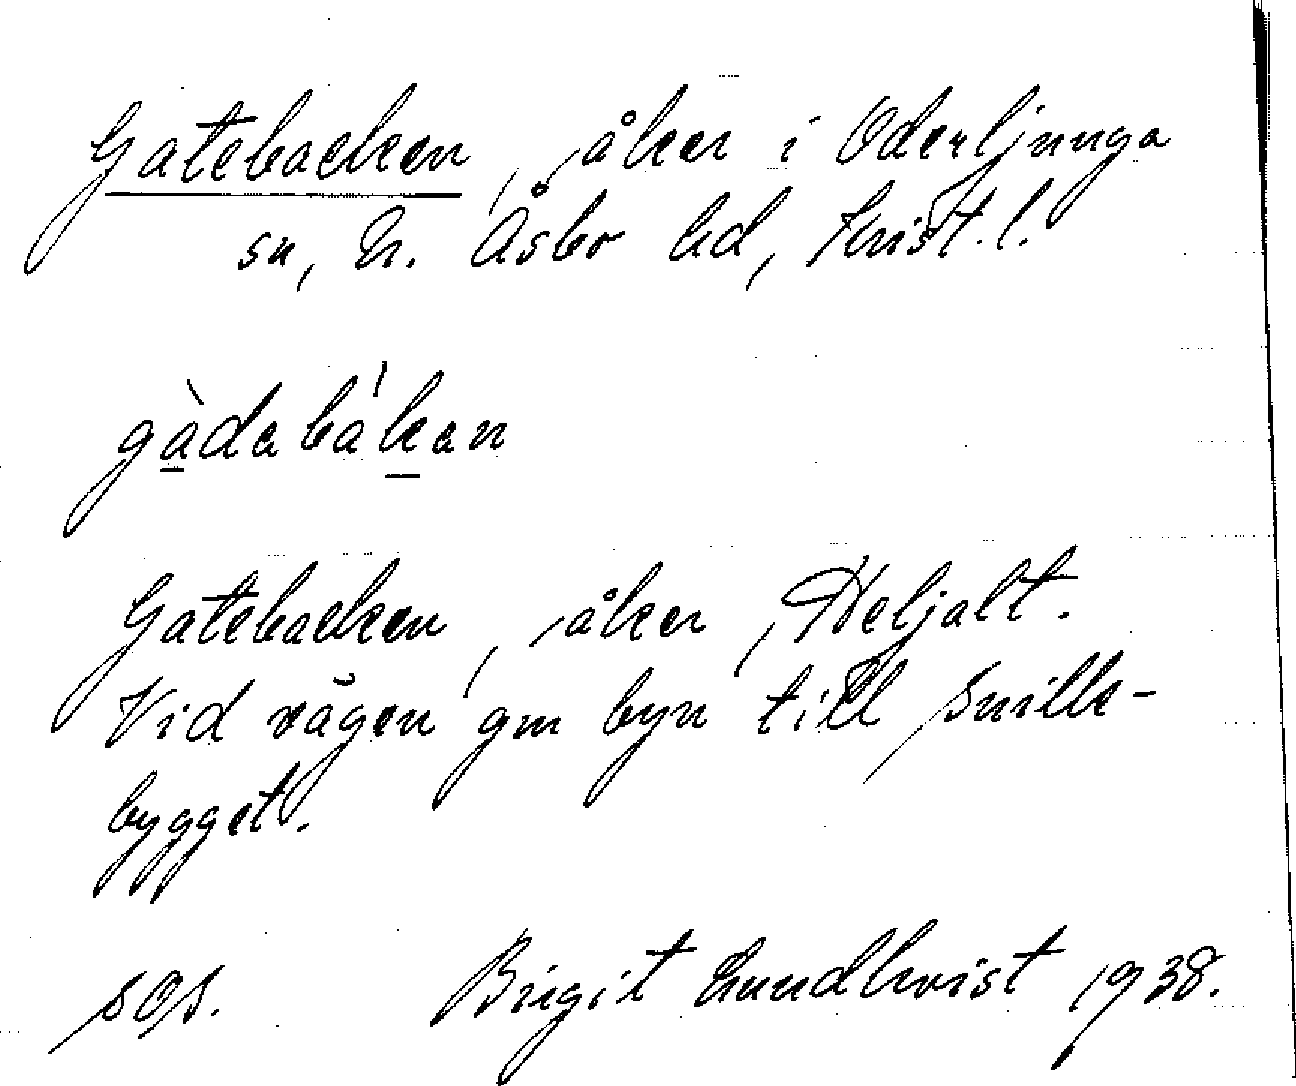 Gatebacken, åker i Oderljunga
sn, N. Åsbo hd, Krist. l.
gàdabákan
Gatebacken, åker, Heljalt.
Vid vägen gm byn till Snille-
bygget.
SOS. Birgit Lundkvist 1938.